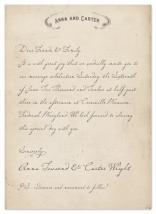 ANNA AND CARTER
Dear Friends & Family,
It is with great joy that we cordially invite you to
our marriage celebration Saturday, the Sixteenth
of June, Two Thousand and Twelve at half past
three in the afternoon at Mansion,
Maryland. We look forward to sharing
this special day with you.
Sincerely,
Anna & Carter Wright
P.S. Dinner and merriment to follow!